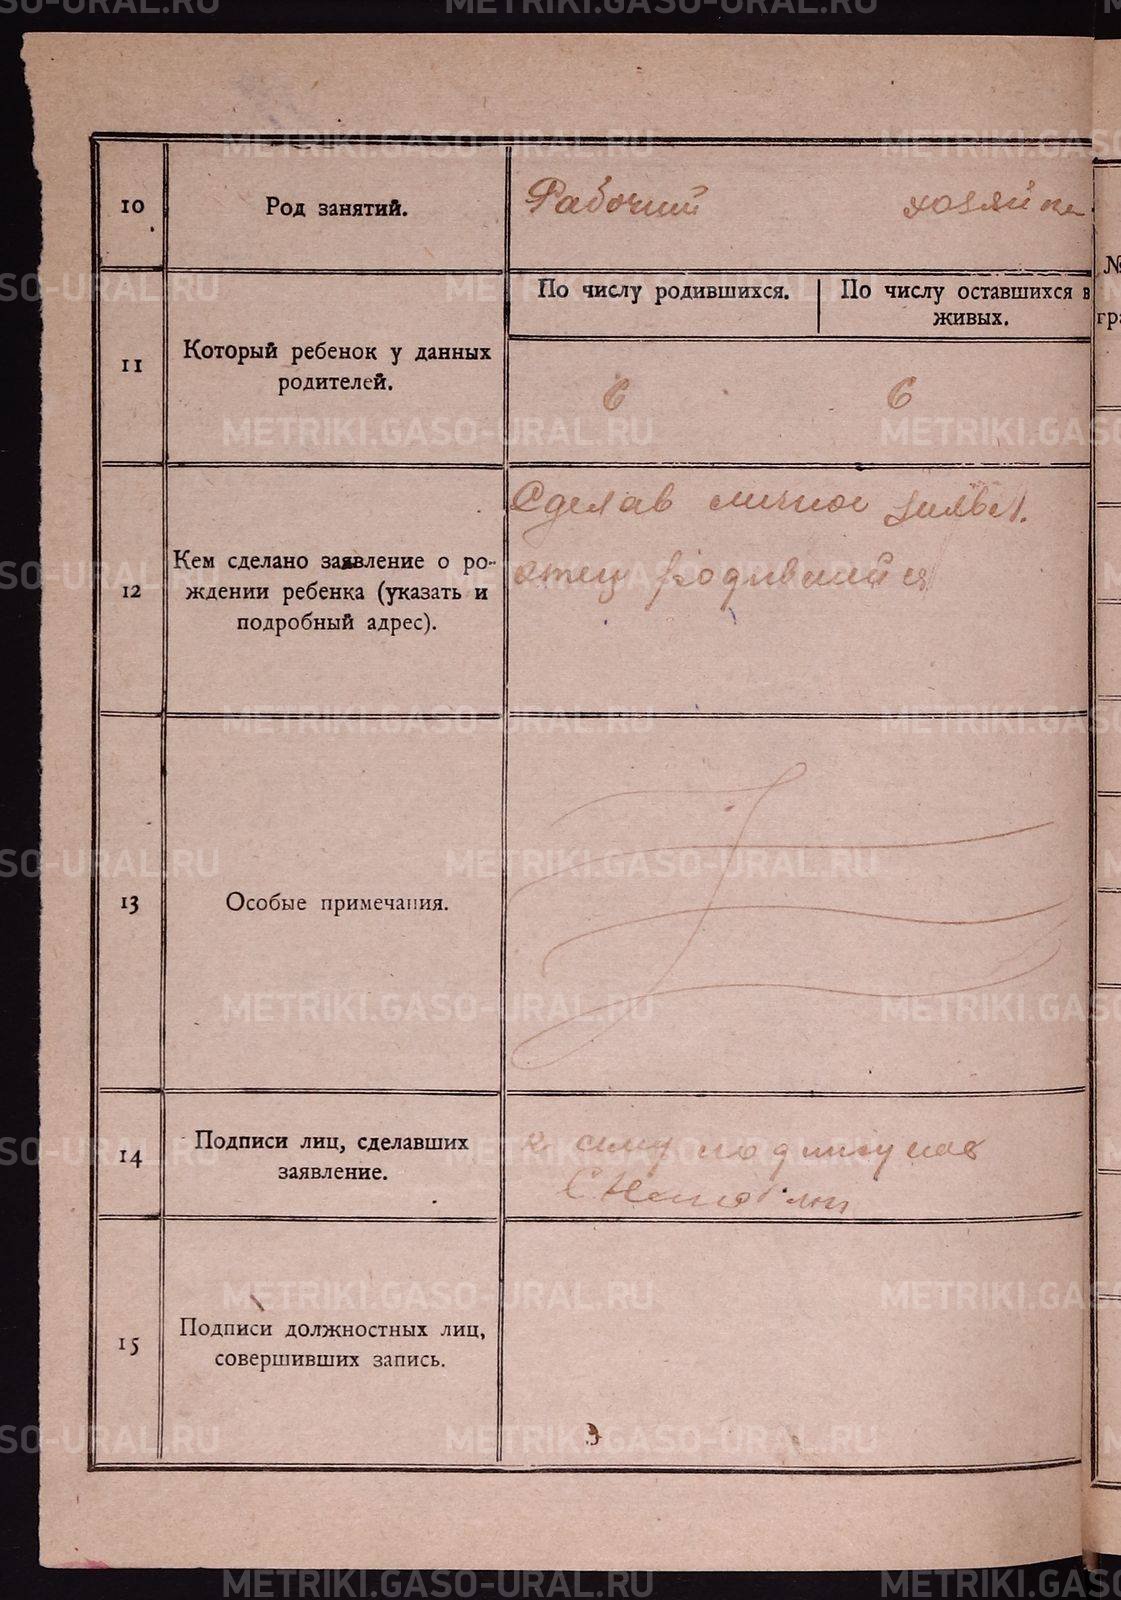 METRIKI.GASO-URAL.RU
10
Род занятий.
Рабочий хозяйка
11
Который ребенок у данных
родителей.
По числу родившихся.
По числу оставшихся в
живых.
6
6
12
Кем сделано заявление о ро-
ждении ребенка (указать и
подробный адрес).
Сделав личное заявл.
отец родившийся
13
Особые примечания.
14
Подписи лиц, сделавших
заявление.
к сему подписуюсь
15
Подписи должностных лиц,
совершивших запись.
№
гра